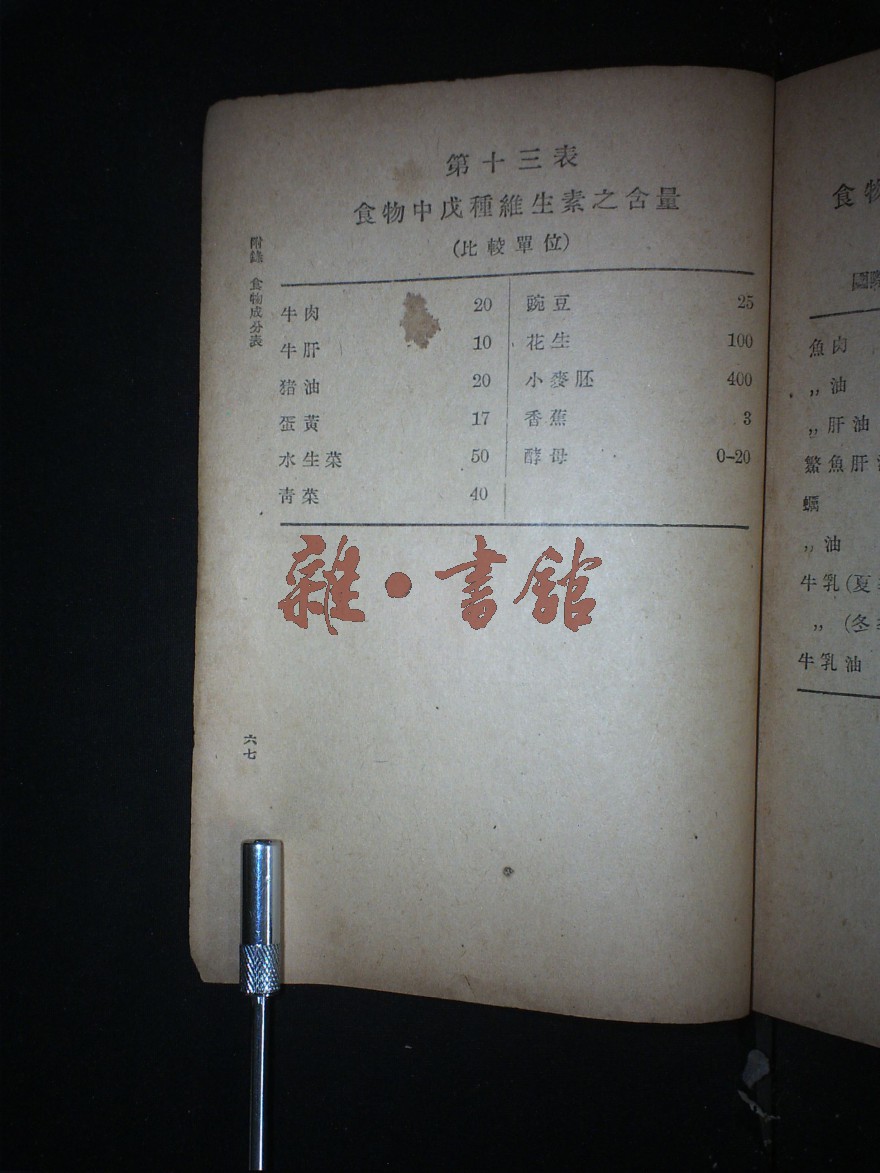 第十三表
食物中戊種維生素之含量
(比較單位)
附錄 食物成分表
牛肉 20 豌豆 25
牛肝 10 花生 100
豬油 20 小麥胚 400
蛋黃 17 香蕉 3
水生菜 50 酵母 0-20
青菜 40
雜·書館
六七
食物
國際
魚肉
,, 油
,, 肝油
鱉魚肝
蠣
,, 油
牛乳(夏
,, (冬
牛乳油